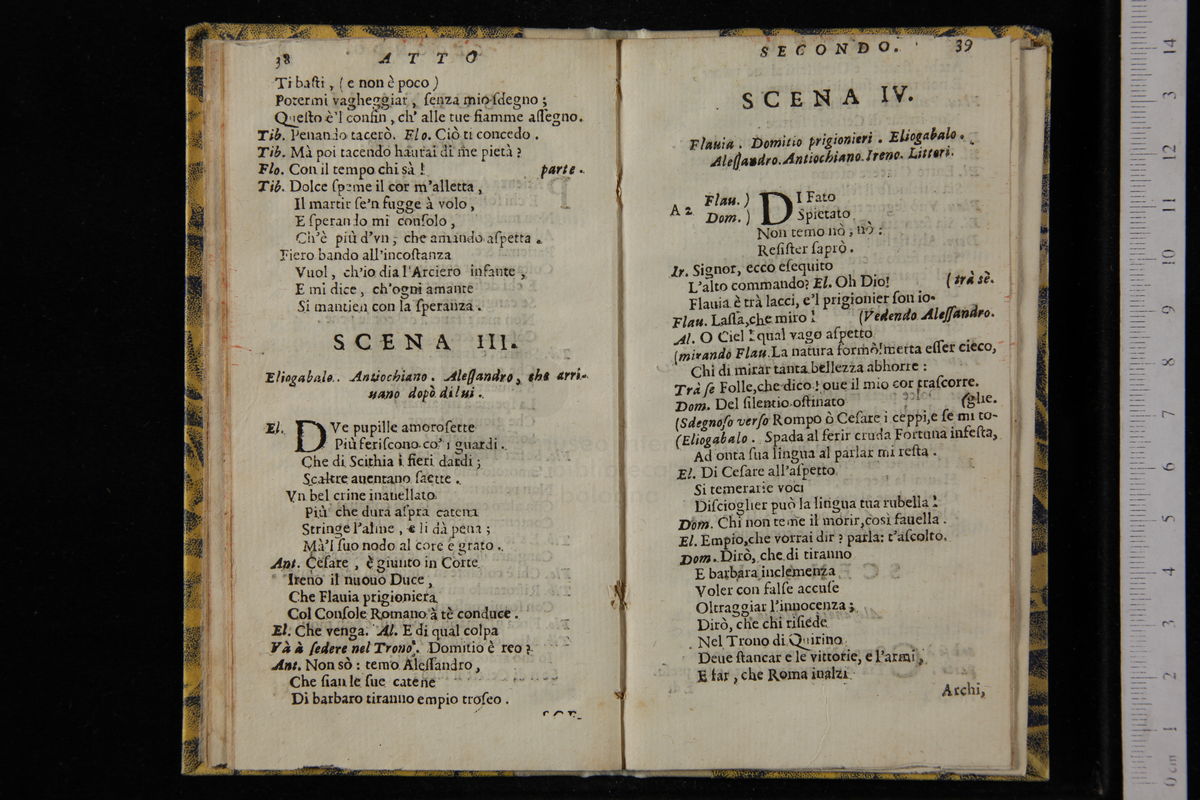 38 ATTO
Ti basti, (e non è poco)
Potermi vagheggiar, senza mio sdegno;
Questo è'l confin, ch' alle tue fiamme assegno.
Tib. Penando tacerò. Flo. Ciò ti concedo.
Tib. Mà poi tacendo haurai di me pietà?
Flo. Con il tempo chi sà! parte.
Tib. Dolce speme il cor m'alletta,
Il martir se'n fugge à volo,
E sperando mi consolo,
Ch'è più d'vn, che amando aspetta.
Fiero bando all'incostanza
Vuol, ch'io dia l'Arciero infante,
E mi dice, ch'ogni amante
Si mantien con la speranza.
SCENA III.
Eliogabalo. Antiochiano. Alessandro, che arri-
uano dopò di lui.
El. DVe pupille amorosette
Più feriscono co' i guardi.
Che di Scithia i fieri dardi;
Scaltre auentano saette.
Vn bel crine inanellato
Più che dura aspra catena
Stringe l'alme, e li dà pena;
Mà'l suo nodo al core è grato.
Ant. Cesare, è giunto in Corte
Ireno il nuouo Duce,
Che Flauia prigioniera
Col Console Romano à tè conduce.
El. Che venga. Al. E di qual colpa
Và à sedere nel Trono. Domitio è reo?
Ant. Non sò: temo Alessandro,
Che sian le sue catene
Di barbaro tiranno empio trofeo.
SECONDO. 39
SCENA IV.
Flauia. Domitio prigionieri. Eliogabalo.
Alessandro. Antiochiano. Ireno. Littori.
A 2 Flau.) DI Fato
Dom.) Spietato
Non temo nò, nò:
Resister saprò.
Ir. Signor, ecco esequito
L'alto commando? El. Oh Dio! (trà sè.
Flauia è trà lacci, e'l prigionier son io.
Flau. Lassa, che miro! (Vedendo Alessandro.
Al. O Ciel! qual vago aspetto
(mirando Flau. La natura formò! merta esser cieco,
Chi di mirar tanta bellezza abhorre:
Trà se Folle, che dico! oue il mio cor trascorre.
Dom. Del silentio ostinato (glie.
(Sdegnoso verso Rompo ò Cesare i ceppi, e se mi to-
(Eliogabalo. Spada al ferir cruda Fortuna infesta,
Ad onta sua lingua al parlar mi resta.
El. Di Cesare all'aspetto
Si temerarie voci
Discioglier può la lingua tua rubella!
Dom. Chi non teme il morir, così fauella.
El. Empio, che vorrai dir? parla: t'ascolto.
Dom. Dirò, che di tiranno
E barbara inclemenza
Voler con false accuse
Oltraggiar l'innocenza;
Dirò, che chi risiede
Nel Trono di Quirino
Deue stancar e le vittorie, e l'armi,
E far, che Roma inalzi
Archi,